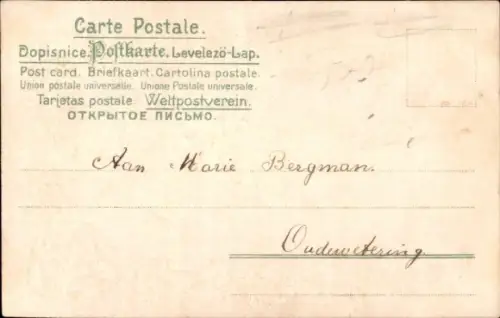 Carte Postale.
Dopisnice. Postkarte. Levelezö-Lap.
Post card. Briefkaart. Cartolina postale.
Union postale universelle. Unione Postale universale.
Tarjetas postale. Weltpostverein.
ОТКРЫТОЕ ПИСЬМО.
Aan Marie Bergman.
Oudewetering.